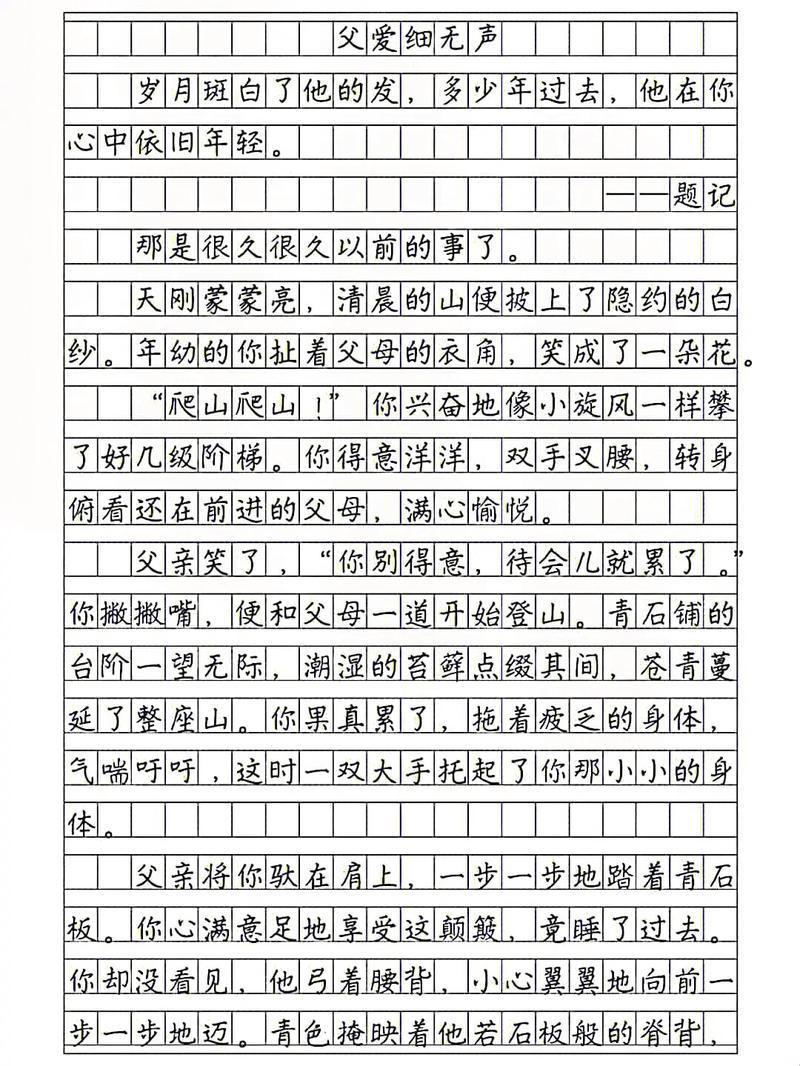 父爱细无声
岁月斑白了他的发，多少年过去，他在你
心中依旧年轻。
——题记
那是很久很久以前的事了。
天刚蒙蒙亮，清晨的山便披上了隐约的白
纱。年幼的你扯着父母的衣角，笑成了一朵花。
“爬山爬山！”你兴奋地像小旋风一样攀
了好几级阶梯。你得意洋洋，双手叉腰，转身
俯看还在前进的父母，满心愉悦。
父亲笑了，“你别得意，待会儿就累了。”
你撇撇嘴，便和父母一道开始登山。青石铺的
台阶一望无际，潮湿的苔藓点缀其间，苍青蔓
延了整座山。你果真累了，拖着疲乏的身体，
气喘吁吁，这时一双大手托起了你那小小的身
体。
父亲将你驮在肩上，一步一步地踏着青石
板。你心满意足地享受这颠簸，竟睡了过去。
你却没看见，他弓着腰背，小心翼翼地向前一
步一步地迈。青色掩映着他若石板般的脊背，